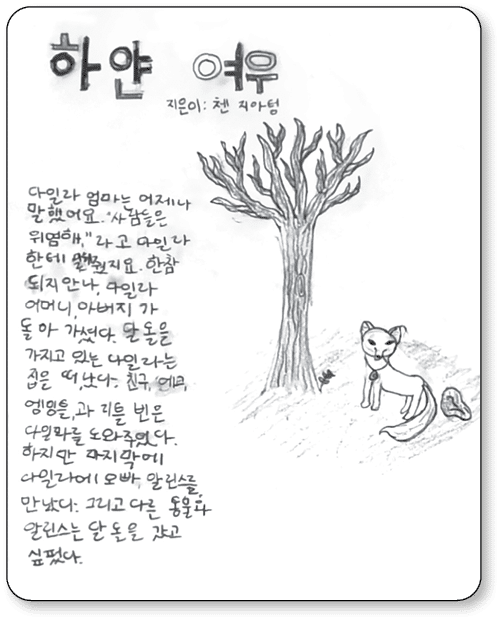 하얀 여우
지은이: 첸 지아텅
다일라 엄마는 어제나
말했어요. "사람들은
위염해," 라고 다일라
한테 말해줬지요. 한참
되지안나, 다일라
어머니, 아버지 가
돌아 가셨다. 달돌을
가지고 있는 다일라는
집을 떠났다. 친구,
과 리틀 빈은
다일라를 도와주었다.
하지만 마지막에
다일라에 오빠, 알린스를,
만났다. 그리고 다른 동물과
알린스는 달돌을 갔고
싶펐다.